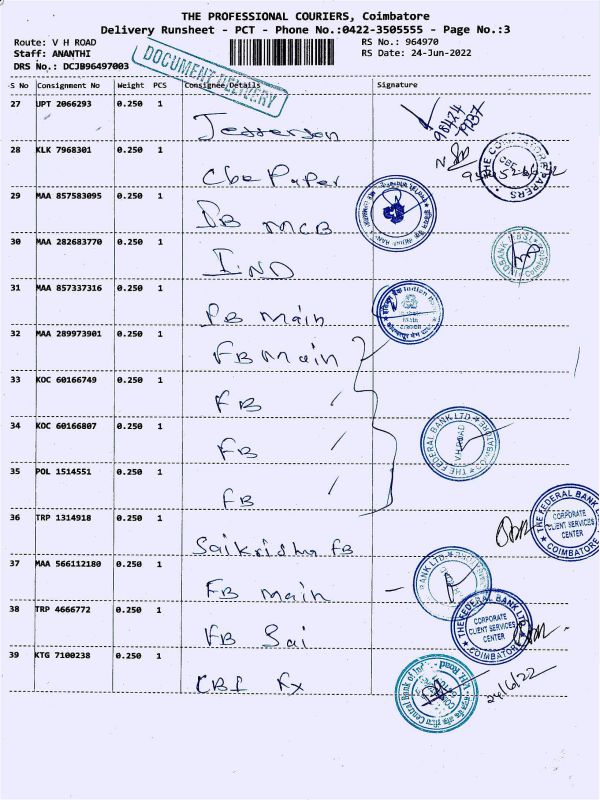 THE PROFESSIONAL COURIERS, Coimbatore
Delivery Runsheet - PCT - Phone No.:0422-3505555 - Page No.:3
Route: V H ROAD RS No.: 964970
Staff: ANANTHI RS Date: 24-Jun-2022
DRS No.: DCJB96497003
DOCUMENT DELIVERY
S No Consignment No Weight PCS Consignee/Details Signature
27 UPT 2066293 0.250 1
Jefferson
28 KLK 7968301 0.250 1
Cbe Paper
29 MAA 857583095 0.250 1
IB MCB
30 MAA 282683770 0.250 1
IND
31 MAA 857337316 0.250 1
IB Main
32 MAA 289973901 0.250 1
FB Main
33 KOC 60166749 0.250 1
FB
34 KOC 60166807 0.250 1
FB
THE FEDERAL BANK LTD
V.H.ROAD
COIMBATORE
35 POL 1514551 0.250 1
FB
36 TRP 1314918 0.250 1
Saikrishna FB
THE FEDERAL BANK
CORPORATE
CLIENT SERVICES
CENTER
COIMBATORE
37 MAA 566112180 0.250 1
FB Main
38 TRP 4666772 0.250 1
FB Sai
THE FEDERAL BANK LTD
CORPORATE
CLIENT SERVICES
CENTER
COIMBATORE
39 KTG 7100238 0.250 1
CBI Fx
24/6/22